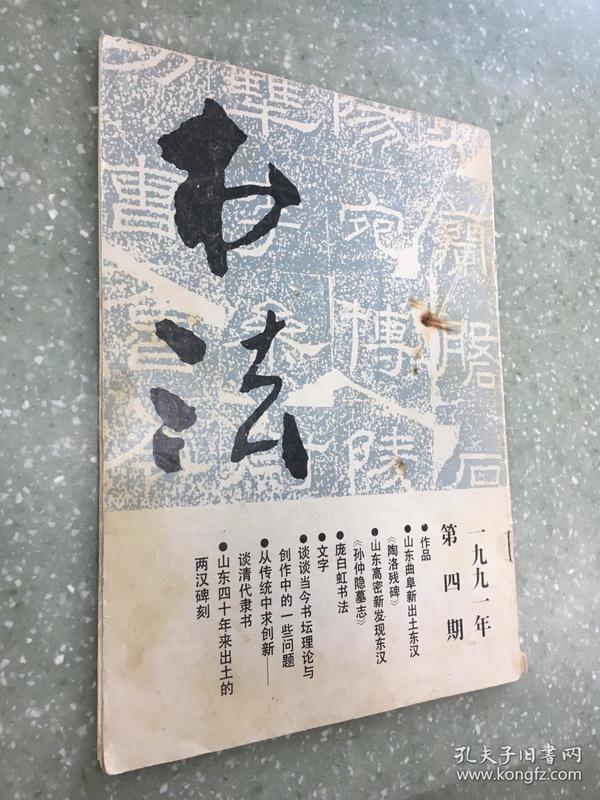 书法
一九九一年
第四期
●作品
●山东曲阜新出土东汉
《陶洛残碑》
●山东高密新发现东汉
《孙仲隐墓志》
●庞白虹书法
●文字
●谈谈当今书坛理论与
创作中的一些问题
●从传统中求创新——
谈清代隶书
●山东四十年来出土的
两汉碑刻
孔夫子旧书网
www.kongfz.com